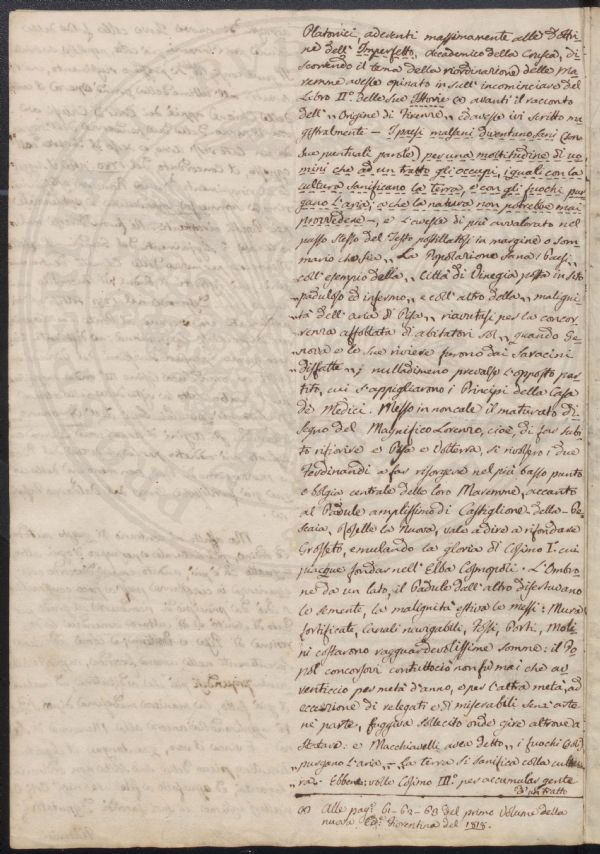 Platonici, aderenti massimamente alle Dottri-
ne dell' Imperfetto, Accademico della Crusca, di-
scorrendo il tema della riordinazione delle Ma-
remme avesse opinato in sull' incominciare del
Libro II.º delle sue Istorie (∞) avanti il racconto
dell' „ Origine di Firenze „ ed avesse ivi scritto ma-
gistralmente — I paesi malsani diventano sani (son
sue puntuali parole) per una moltitudine di uo-
mini che ad un tratto gli occupi, i quali con la
cultura sanificano la terra, e con gli fuochi pur-
gano l'aria; a che la natura non potrebbe mai
provvedere —, e l'avesse di più avvalorato nel
passo stesso del Testo postillatosi in margine o som-
mario che sia „ La Popolazione sana i Paesi „
coll' esempio della „ Città di Vinegia posta in sito
„ paduloso ed infermo „ e coll' altro della „ maligni-
„ tà dell' aria di Pisa „ riavutasi per la concor-
renza affollata di abitatori sol „ quando Ge-
„ nova e le sue riviere furono dai Saracini
„ disfatte „; nulladimeno prevalse l'opposto par-
tito, cui s'appigliarono i Principi della Casa
de Medici. Messo in non cale il maturato di-
segno del Magnifico Lorenzo, cioè, di far subi-
to rifiorire e Pisa e Volterra, si rivolsero i due
Ferdinandi a far risorgere nel più basso punto
e bolgia centrale delle loro Maremme, accanto
al Padule amplissimo di Castiglione della Pe-
scaia, Roselle la Nuova, vale a dire a rifondare
Grosseto, emulando la gloria di Cosimo I.º cui
piacque fondar nell' Elba Cosmopoli. L'Ombro-
ne da un lato, il Padule dall' altro disertavano
le sementi, la malignità estiva le messi: Mura
fortificate, Canali navigabili, Fossi, Porti, Moli-
ni costarono ragguardevolissime somme: il Po-
pol concorsovi contuttociò non fu mai che av-
veniticcio per metà d'anno, e per l'altra metà, ad
eccezione di relegati e di miserabili senz' arte
nè parte, fuggiva sollecito onde gire altrove a
Statare: e Macchiavelli avea detto „ i fuochi
„ purgano l'aria — La terra si sanifica colla cultu-
„ ra. Ebbene: volle Cosimo III.º per accumular gente
D'un tratto
(∞) Alle pag.e 61 - 62 - 63 del primo Volume della
nuova Ediz.e Fiorentina del 1818.